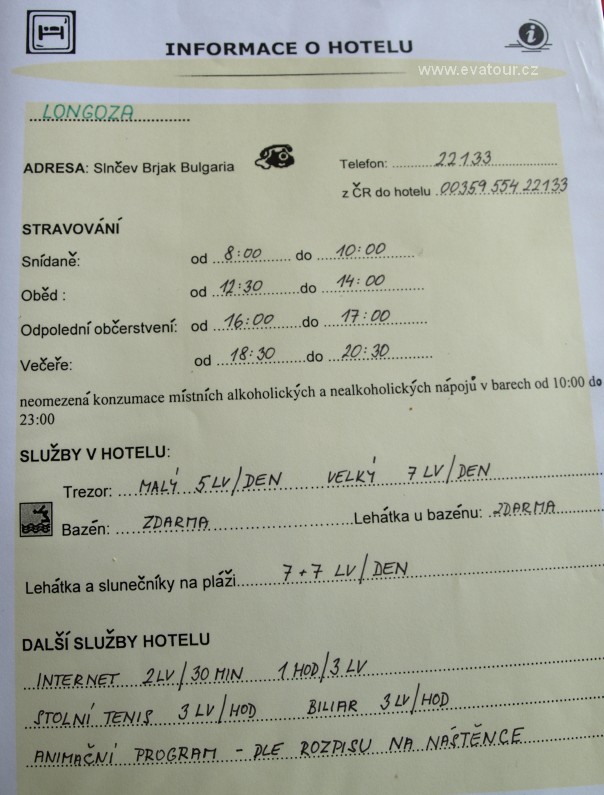 INFORMACE O HOTELU
www.evatour.cz
LONGOZA
ADRESA: Slnčev Brjak Bulgaria
Telefon: 22133
z ČR do hotelu 00359 554 22133
STRAVOVÁNÍ
Snídaně: od 8:00 do 10:00
Oběd : od 12:30 do 14:00
Odpolední občerstvení: od 16:00 do 17:00
Večeře: od 18:30 do 20:30
neomezená konzumace místních alkoholických a nealkoholických nápojů v barech od 10:00 do
23:00
SLUŽBY V HOTELU:
Trezor: MALÝ 5 LV/DEN VELKÝ 7 LV/DEN
Bazén: ZDARMA Lehátka u bazénu: ZDARMA
Lehátka a slunečníky na pláži 7+7 LV/DEN
DALŠÍ SLUŽBY HOTELU
INTERNET 2LV/30 MIN 1 HOD/3 LV
STOLNÍ TENIS 3 LV/HOD BILIAR 3 LV/HOD
ANIMAČNÍ PROGRAM - DLE ROZPISU NA NÁŠTĚNCE